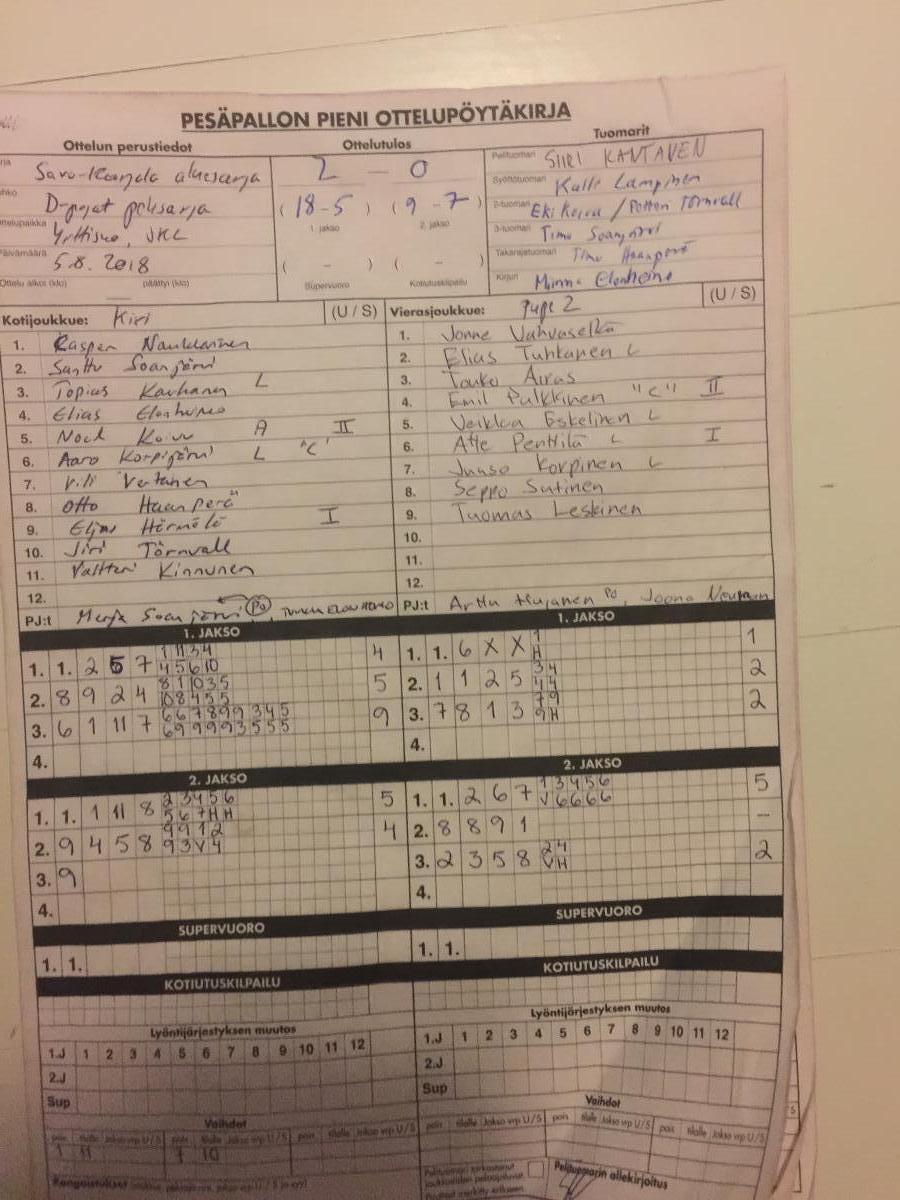 PESÄPALLON PIENI OTTELUPÖYTÄKIRJA
Ottelun perustiedot
Ottelutulos
Tuomarit
Savo-Karjala aluesarja
D-pojat
Yrttisuo, JKL
Päivämäärä 5.8.2018
Ottelu alkoi (klo) päättyi (klo)
2 - 0
(18-5) (9-7)
1. jakso 2. jakso
( - ) ( - )
Supervuoro Kotiutuskilpailu
Pelituomari SIIRI KANTANEN
Syöttötuomari Kalle Lampinen
2-tuomari Eki Koivu / Petteri Törnvall
3-tuomari Timo Soanjärvi
Takarajatuomari Timo Haanperä
Kirjuri Minna Elonheimo
Kotijoukkue: Kiri (U / S)
1. Kasper Naukkarinen
2. Santtu Soanjärvi
3. Topias Karhanen L
4. Elias Elonheimo
5. Noel Koivu A II
6. Aaro Korpijärvi L "C"
7. Vili Vertanen
8. Otto Haanperä
9. Elias Härmälä I
10. Jiri Törnvall
11. Valtteri Kinnunen
12.
PJ:t Merja Soanjärvi PO,
Vierasjoukkue: Pupe 2 (U / S)
1. Jonne Vahvaselkä
2. Elias Tuhkanen L
3. Touko Airas
4. Emil Pulkkinen "C" II
5. Veikka Eskelinen L
6. Atte Penttilä L I
7. Juuso Korpinen L
8. Seppo Sutinen
9. Tuomas Leskinen
10.
11.
12.
PJ:t Arttu Hujanen PO, Joona
1. JAKSO
1. 1. 2 5 7 4
2. 8 9 2 4 5
3. 6 1 11 7 9
4.
1. JAKSO
1. 1. 6 X X 1 H 1
2. 1 1 2 5 3 4 4 4 2
3. 7 8 1 3 7 9 9 H 2
4.
2. JAKSO
1. 1. 1 11 8 2 3 4 5 6 5 6 7 H H 5
2. 9 4 5 8 9 9 1 2 9 3 V 4 4
3. 9
4.
2. JAKSO
1. 1. 2 6 7 1 3 4 5 6 V 6 6 6 6 5
2. 8 8 9 1 -
3. 2 3 5 8 2 4 V H 2
4.
SUPERVUORO
1. 1.
SUPERVUORO
1. 1.
KOTIUTUSKILPAILU
KOTIUTUSKILPAILU
Lyöntijärjestyksen muutos
1.J 1 2 3 4 5 6 7 8 9 10 11 12
2.J
Sup
Lyöntijärjestyksen muutos
1.J 1 2 3 4 5 6 7 8 9 10 11 12
2.J
Sup
Vaihdot
pois tilalle Jakso vrp U/S pois tilalle Jakso vrp U/S pois tilalle Jakso vrp U/S
1 11 7 10
Vaihdot
pois tilalle Jakso vrp U/S pois tilalle Jakso vrp U/S pois tilalle Jakso vrp U/S
Rangaistukset
Pelituomari tarkastanut
Pelituomarin allekirjoitus